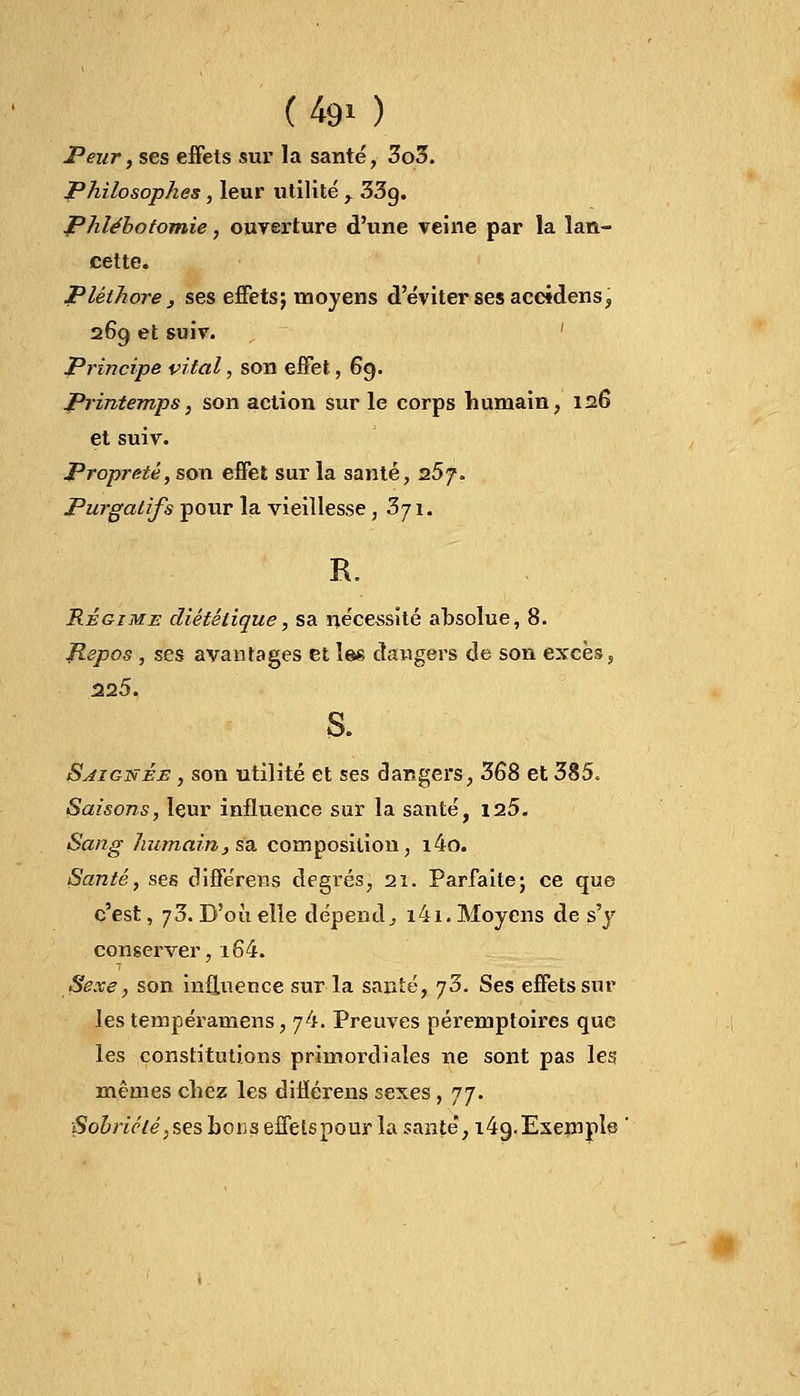 ( 491 )
Peur, ses effets sur la santé, 303.
Philosophes, leur utilité, 339.
Phlébotomie, ouverture d'une veine par la lan-
cette.
Pléthore, ses effets; moyens d'éviter ses accidens,
269 et suiv.
Principe vital, son effet, 69.
Printemps, son action sur le corps humain, 126
et suiv.
Propreté, son effet sur la santé, 257.
Purgatifs pour la vieillesse, 371.
R.
RÉGIME diététique, sa nécessité absolue, 8.
Repos, ses avantages et les dangers de son excès,
225.
S.
SAIGNÉE, son utilité et ses dangers, 368 et 385.
Saisons, leur influence sur la santé, 125.
Sang humain, sa composition, 140.
Santé, ses différens degrés, 21. Parfaite; ce que
c'est, 73. D'où elle dépend, 141. Moyens de s'y
conserver, 164.
Sexe, son influence sur la santé, 73. Ses effets sur
les tempéramens, 74. Preuves péremptoires que
les constitutions primordiales ne sont pas les
mêmes chez les différens sexes, 77.
Sobriété, ses bons effets pour la santé, 149. Exemple